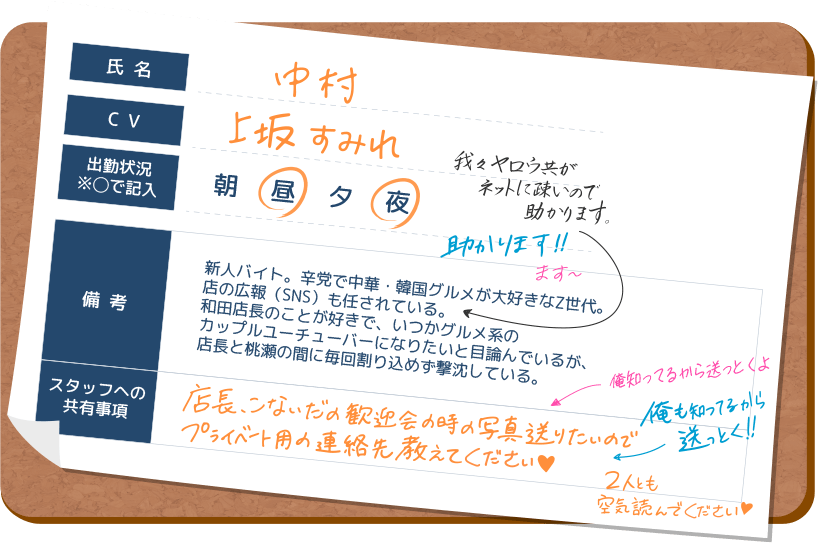 氏 名
中村
C V
上坂すみれ
出勤状況
※○で記入
朝 昼 夕 夜
我々ヤロウ共が
ネットに疎いので
助かります。
助かります!!
ます〜
備 考
新人バイト。辛党で中華・韓国グルメが大好きなZ世代。
店の広報（SNS）も任されている。
和田店長のことが好きで、いつかグルメ系の
カップルユーチューバーになりたいと目論んでいるが、
店長と桃瀬の間に毎回割り込めず撃沈している。
俺知ってるから送っとくよ
スタッフへの
共有事項
店長、こないだの歓迎会の時の写真送りたいので
プライベート用の連絡先教えてください♥
俺も知ってるから
送っとく!!
2人とも
空気読んでください♥